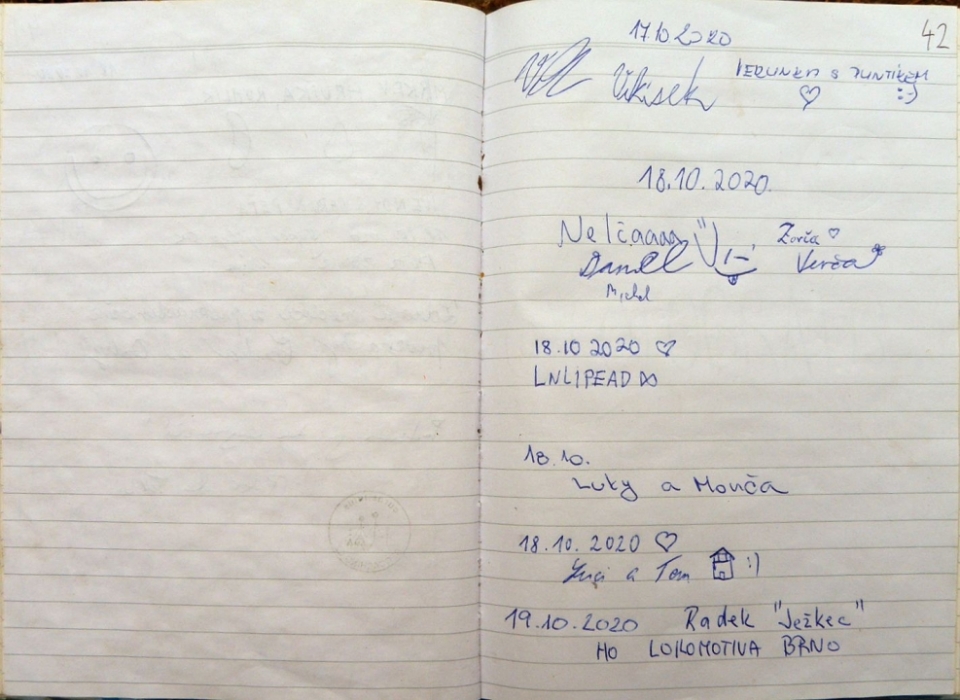 42
17.10 2020
Vikisek VERUNKA S PUNTÍKEM :)
18.10.2020.
Nelčaaaa Zorča
Daniel Verča
Michal
18.10 2020
LNLIPEAD
18.10.
Luky a Monča
18.10.2020
a Tom :)
19.10.2020 Radek "Ježkec"
HO LOKOMOTIVA BRNO